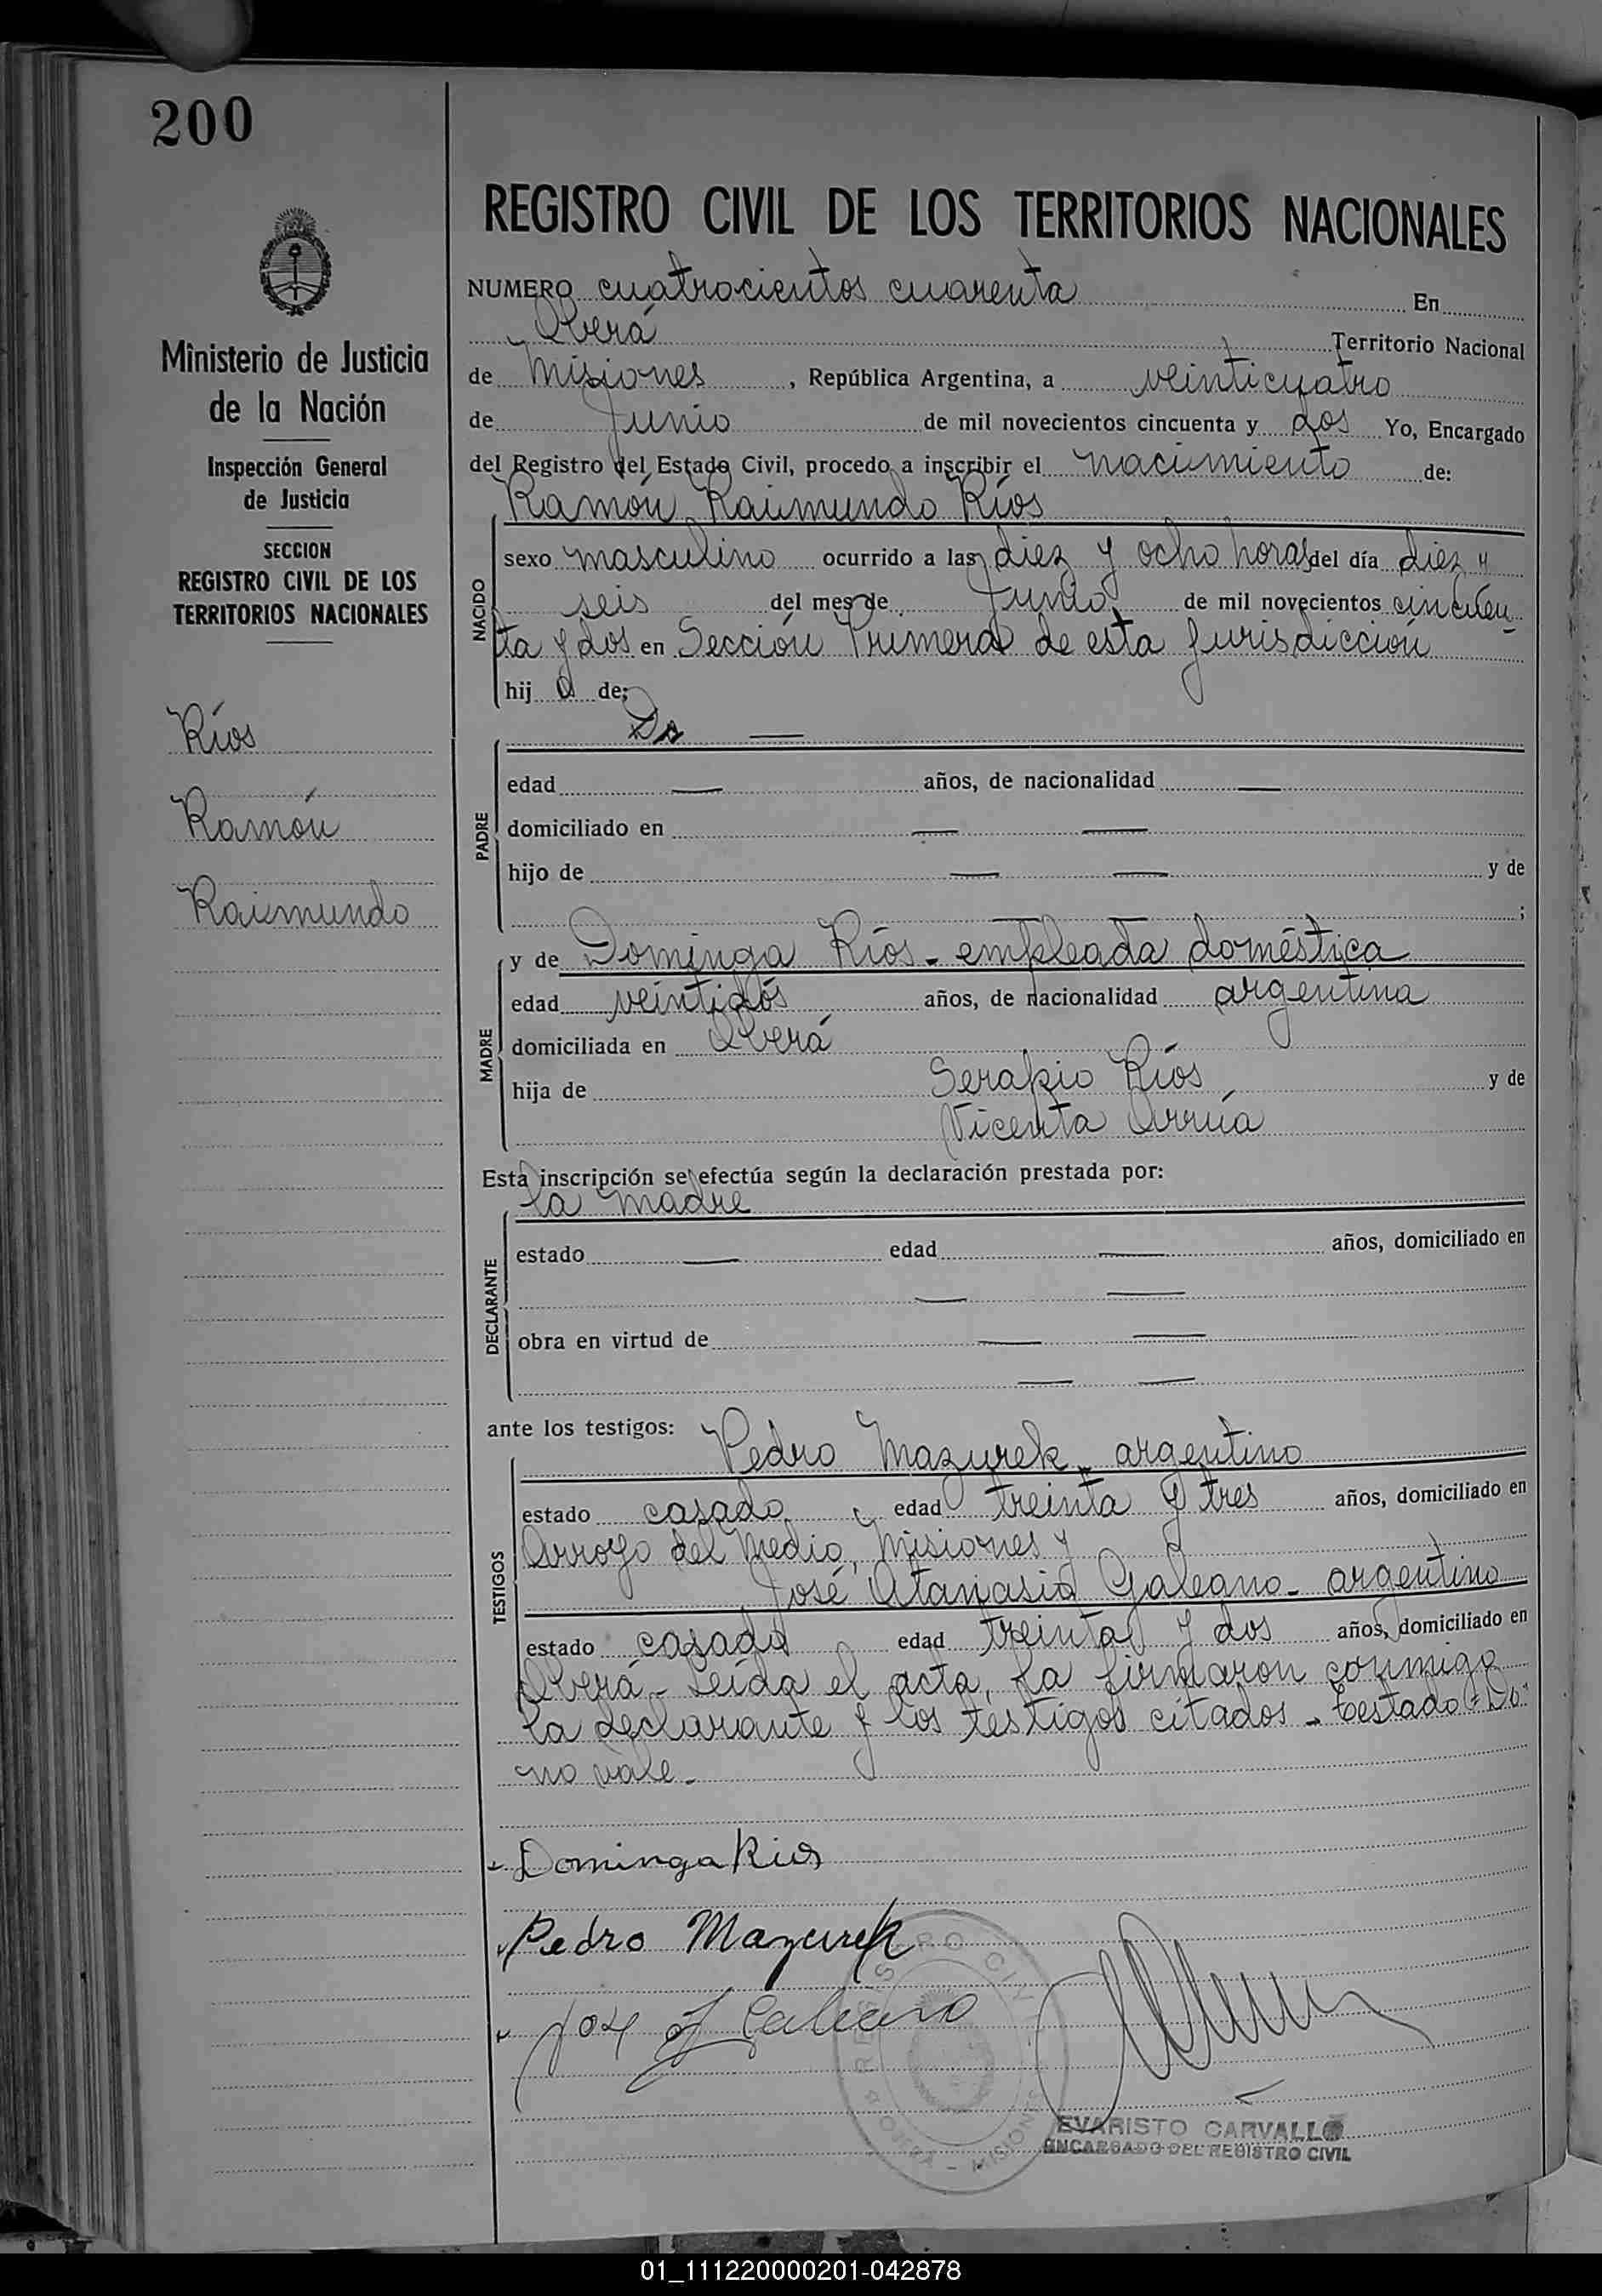 200
REGISTRO CIVIL DE LOS TERRITORIOS NACIONALES
NUMERO cuatrocientos cuarenta En
Oberá Territorio Nacional
de Misiones, República Argentina, a veinticuatro
de Junio de mil novecientos cincuenta y dos Yo, Encargado
del Registro del Estado Civil, procedo a inscribir el nacimiento de:
Ramón Raimundo Ríos
NACIDO
sexo masculino ocurrido a las diez y ocho horas del día diez y
seis del mes de Junio de mil novecientos cincuen-
ta y dos en Sección Primera de esta jurisdicción
hij o de:
Do —
PADRE
edad — años, de nacionalidad —
domiciliado en — —
hijo de — — y de
— — ;
MADRE
y de Dominga Ríos - empleada doméstica
edad veintidós años, de nacionalidad argentina
domiciliada en Oberá
hija de Serapio Ríos y de
Vicenta Arrúa
Esta inscripción se efectúa según la declaración prestada por:
la madre
DECLARANTE
estado — edad — años, domiciliado en
— —
obra en virtud de — —
— —
ante los testigos:
TESTIGOS
Pedro Mazurek - argentino
estado casado edad treinta y tres años, domiciliado en
Arroyo del Medio, Misiones y
José Atanasio Galeano - argentino
estado casado edad treinta y dos años, domiciliado en
Oberá - Leída el acta, la firmaron conmigo
la declarante y los testigos citados - testado = "Do"
no vale -
Dominga Rios
Pedro Mazurek
Jose A Galeano
REGISTRO CIVIL
OBERA - MISIONES
EVARISTO CARVALLO
ENCARGADO DEL REGISTRO CIVIL
Ministerio de Justicia
de la Nación
Inspección General
de Justicia
SECCION
REGISTRO CIVIL DE LOS
TERRITORIOS NACIONALES
Ríos
Ramón
Raimundo
01_111220000201-042878